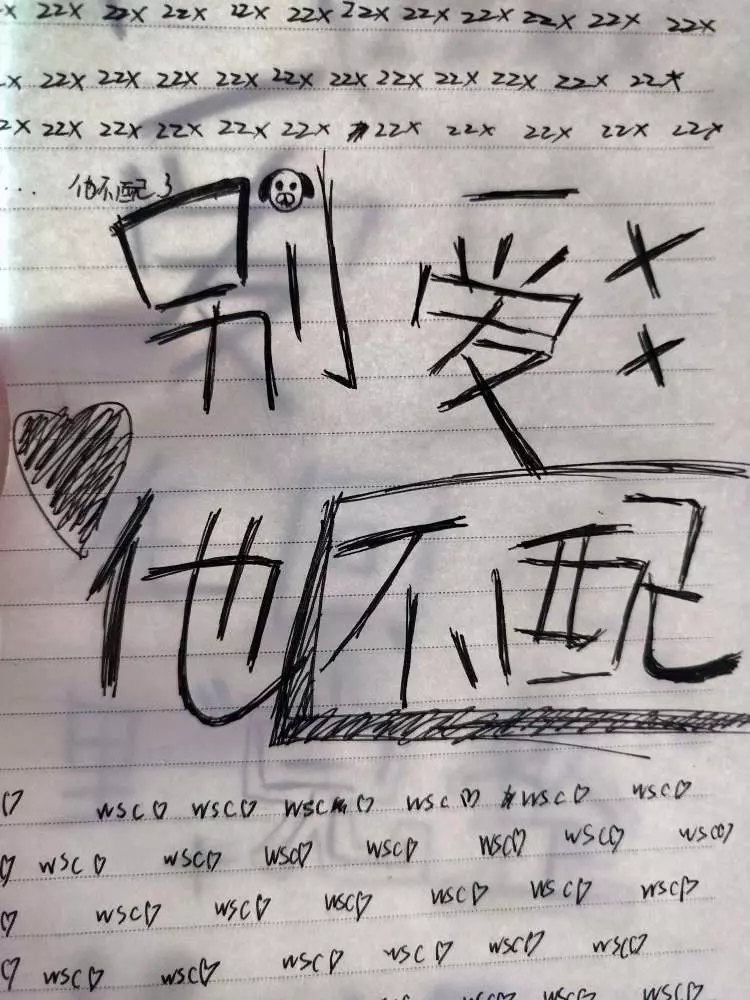 x 22x 22x 22x 22x 22x 22x 22x 22x 22x 22x 22x
x 22x 22x 22x 22x 22x 22x 22x 22x 22x 22x 22x
2x 22x 22x 22x 22x 22x 22x 22x 22x 22x 22x
... 他不配
别爱××
他不配
♡ wsc♡ wsc♡ wsc♡ wsc♡ wsc♡ wsc♡
♡ wsc♡ wsc♡ wsc♡ wsc♡ wsc♡ wsc♡ wsc♡
♡ wsc♡ wsc♡ wsc♡ wsc♡ wsc♡ wsc♡
♡ wsc♡ wsc♡ wsc♡ wsc♡ wsc♡ wsc♡
wsc♡